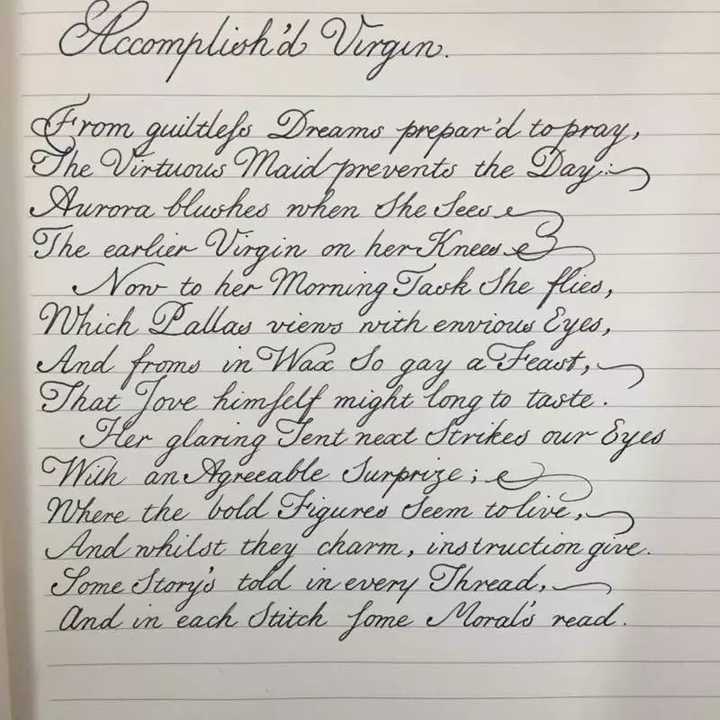 Accomplish'd Virgin.
From guiltleſs Dreams prepar'd to pray,
The Virtuous Maid prevents the Day:
Aurora blushes when She Sees
The earlier Virgin on her Knees.
Now to her Morning Task She flies,
Which Pallas views with envious Eyes,
And froms in Wax So gay a Feast,
That Jove himſelf might long to taste.
Her glaring Tent next Strikes our Eyes
With an Agreeable Surprize;
Where the bold Figures Seem to live,
And whilst they charm, instruction give.
Some Story's told in every Thread,
And in each Stitch ſome Moral's read.